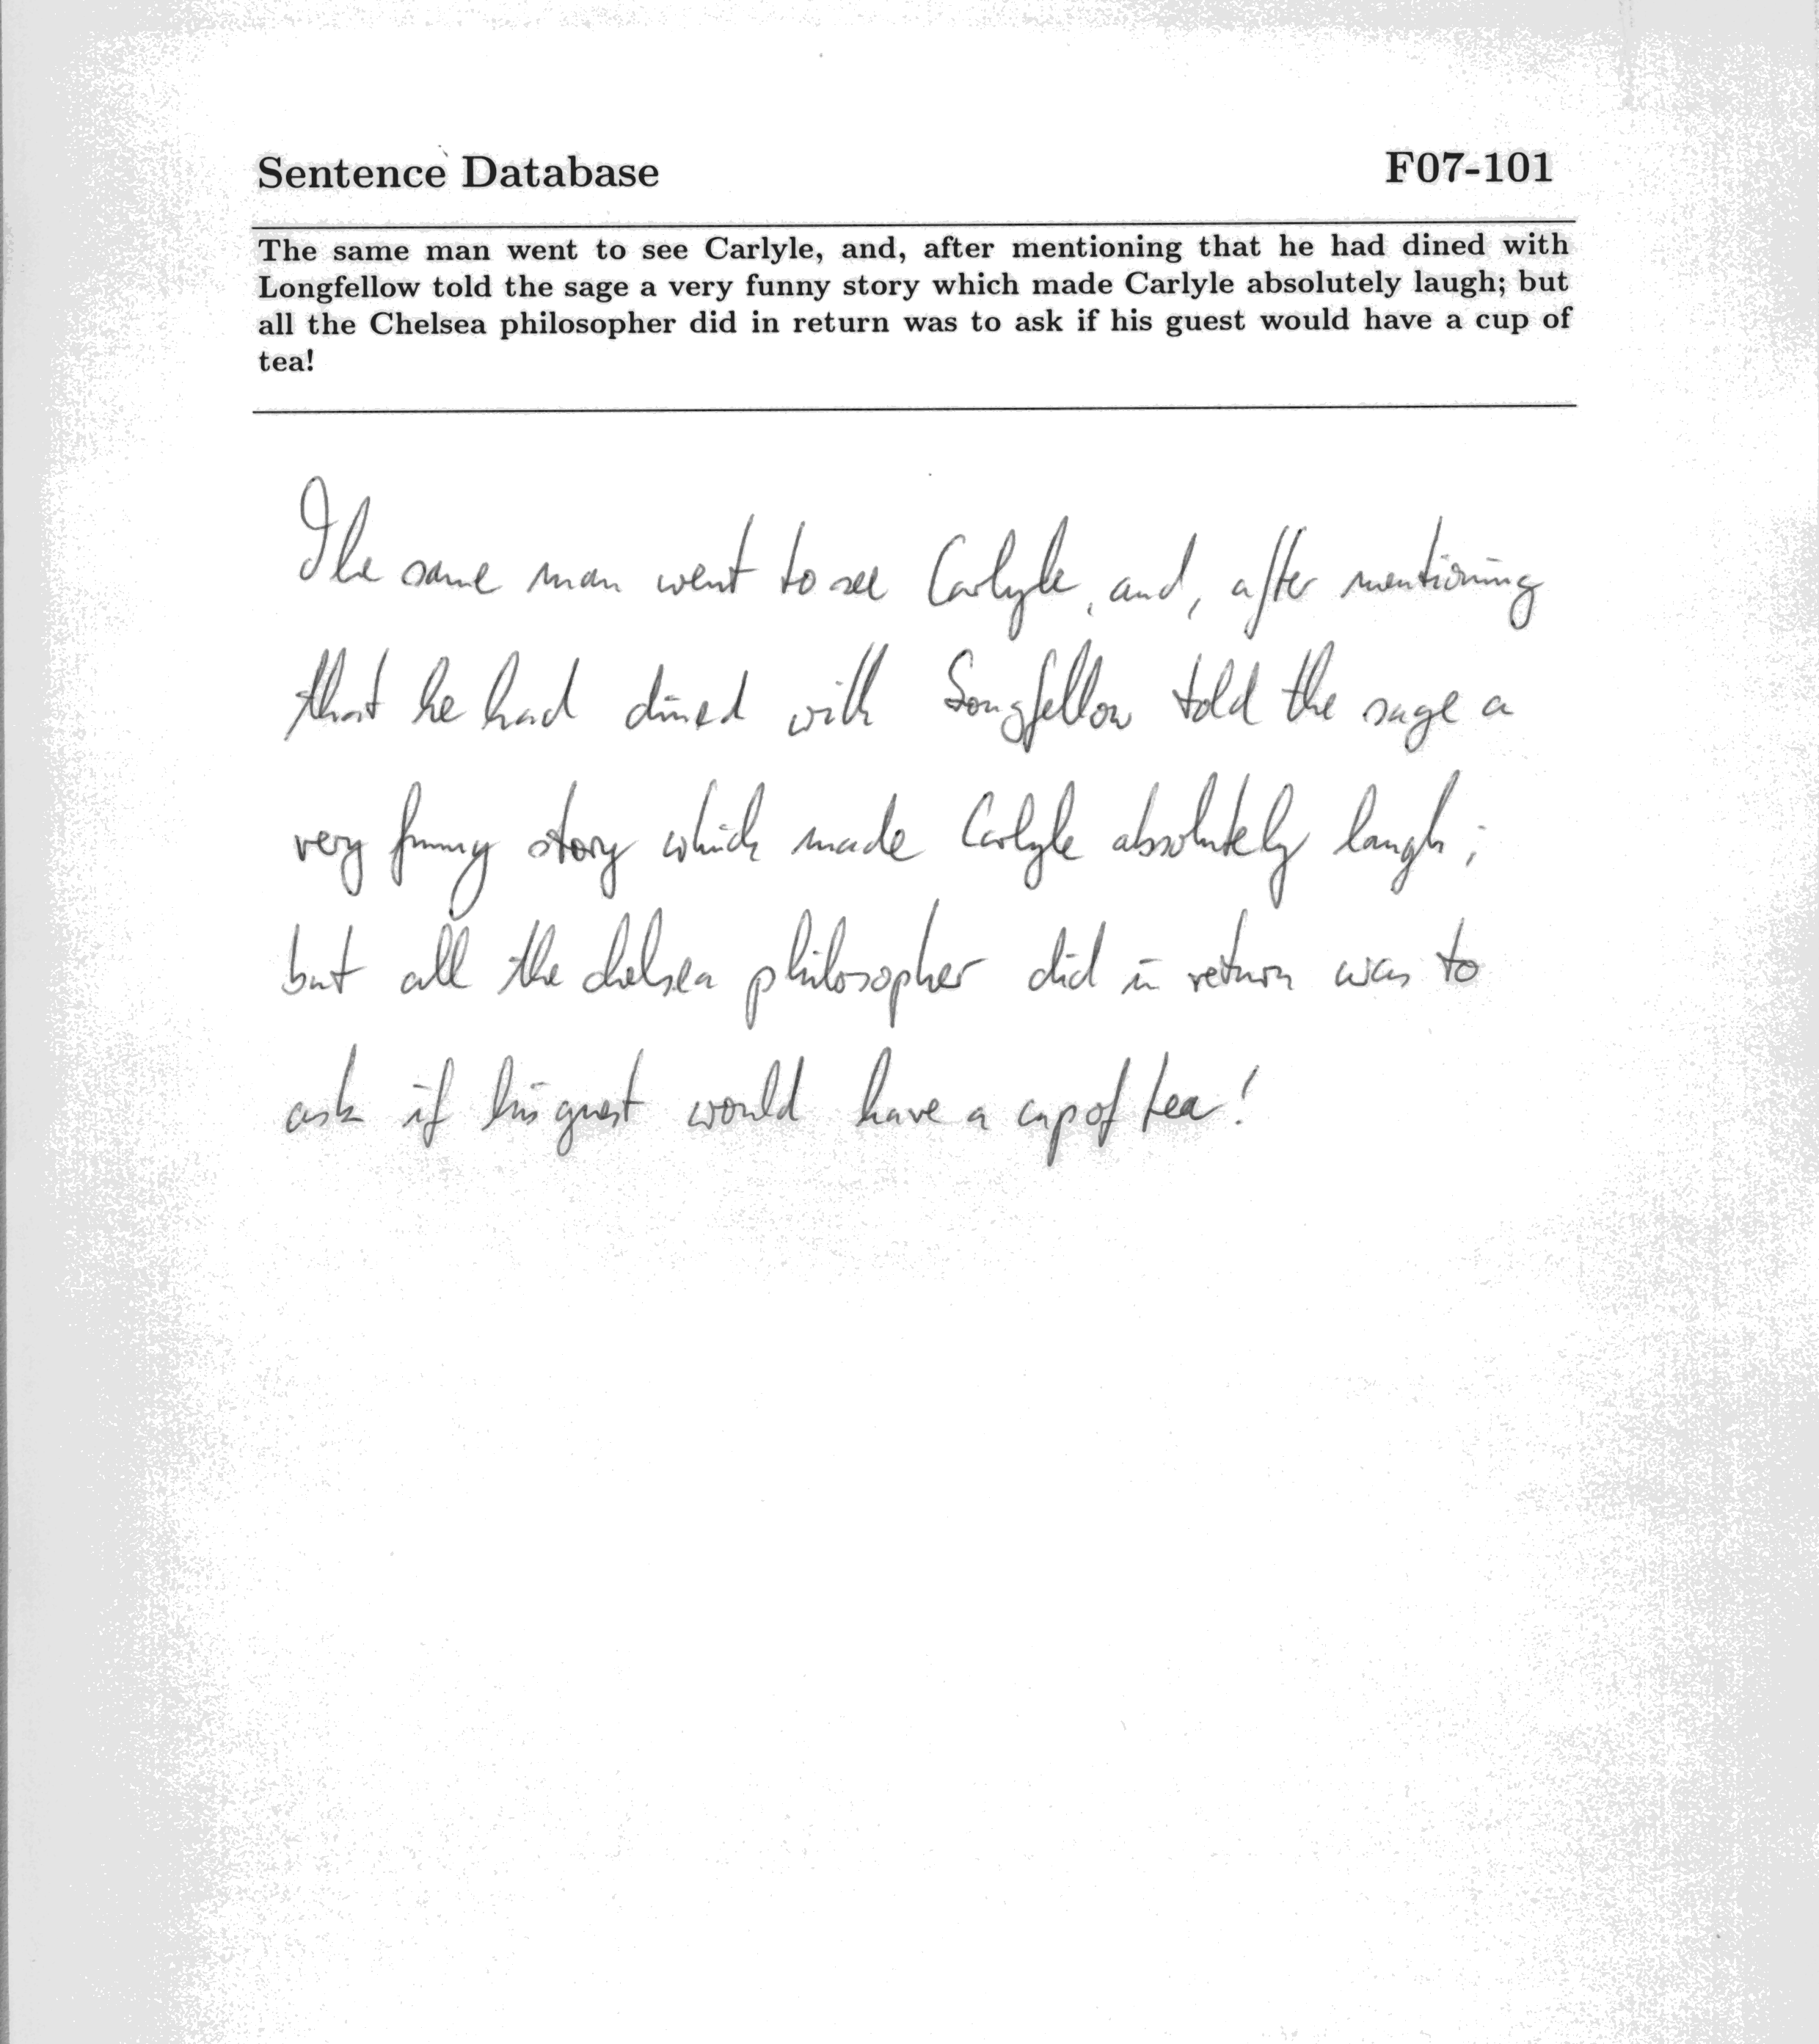 Sentence Database F07-101
The same man went to see Carlyle, and, after mentioning that he had dined with
Longfellow told the sage a very funny story which made Carlyle absolutely laugh; but
all the Chelsea philosopher did in return was to ask if his guest would have a cup of
tea!
The same man went to see Carlyle, and, after mentioning
that he had dined with Longfellow told the sage a
very funny story which made Carlyle absolutely laugh;
but all the chelsea philosopher did in return was to
ask if his guest would have a cup of tea!